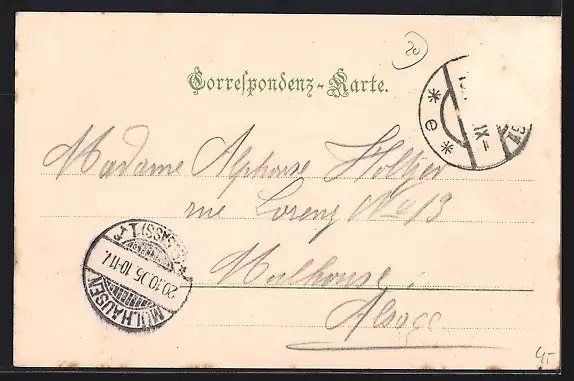 20
Correspondenz-Karte.
* e *
XI
Madame Alphonse Holtzer
rue Lorenz No 13
Mulhouse
Alsace
MÜLHAUSEN
20.10.05 10-11V.
(ELSASS) 1
45